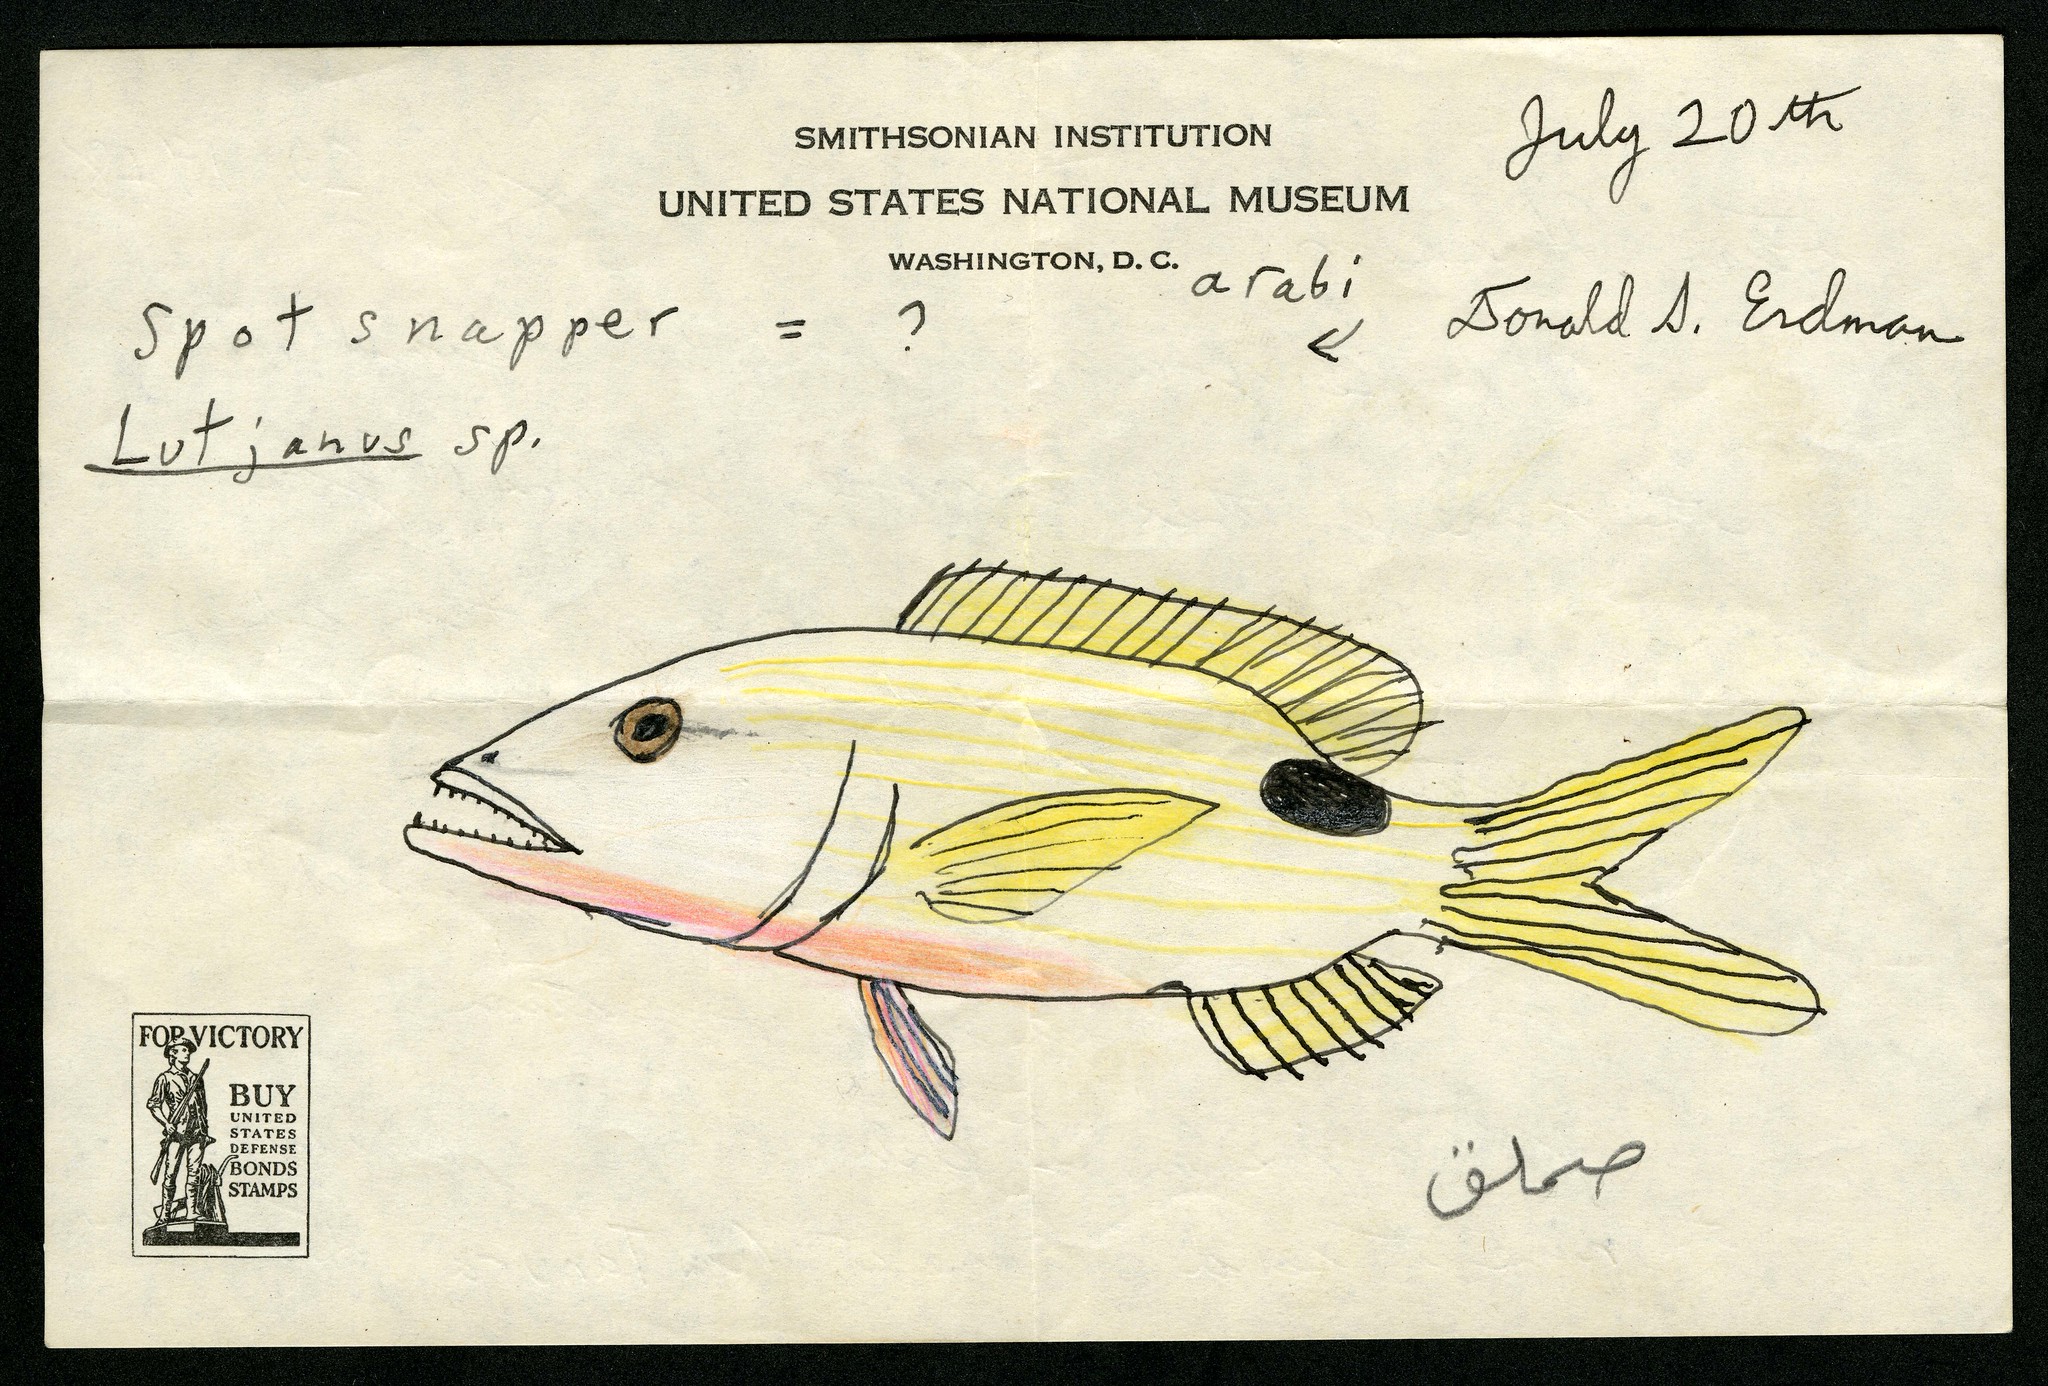 July 20th
SMITHSONIAN INSTITUTION
UNITED STATES NATIONAL MUSEUM
WASHINGTON, D. C.
arabi
Donald S. Erdman
Spot snapper = ?
←
Lutjanus sp.
FOR VICTORY
BUY
UNITED
STATES
DEFENSE
BONDS
STAMPS
صملق